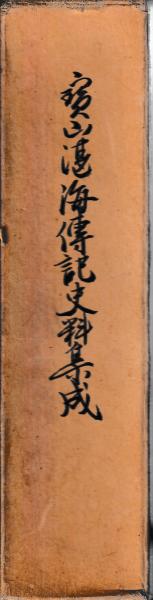 寶山湛海傳記史料集成